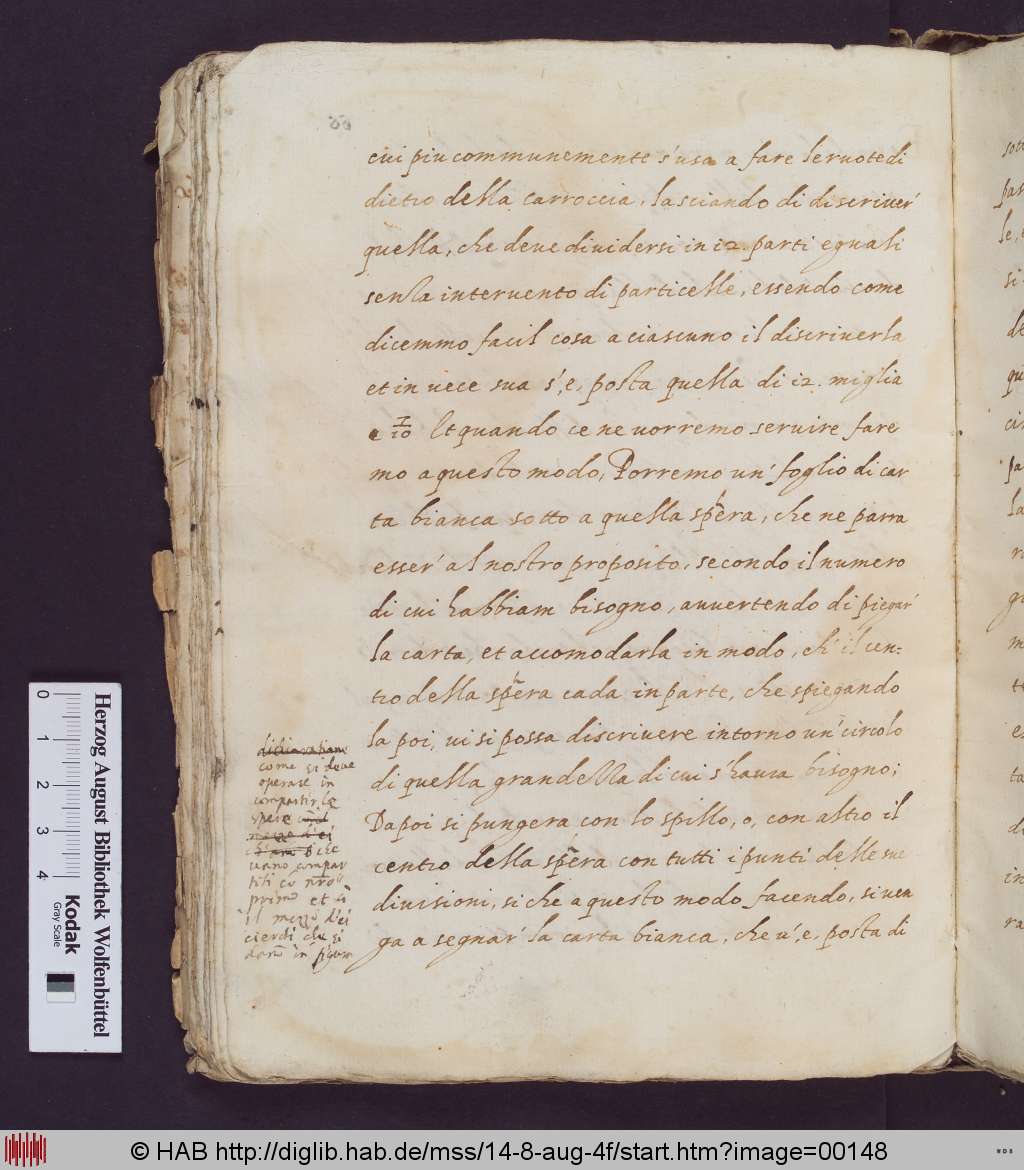 cui piu communemente s'usa a fare le ruote di
dietro della carroccia, lasciando di discriuer'
quella, che deue diuidersi in 12. parti eguali
senza interuento di particelle, essendo come
dicemmo facil cosa a ciascuno il discriuerla
et in uece sua s'è, posta quella di 12. miglia
e 7/10 Et quando ce ne uorremo seruire fare
mo a questo modo, Porremo un' foglio di car
ta bianca sotto a quella sphera, che ne parra
esser' al nostro proposito, secondo il numero
di cui habbiam bisogno, auuertendo di piegar'
la carta, et accomodarla in modo, ch' il cen=
tro della sphera cada in parte, che spiegando
la poi, ui si possa discriuere intorno un' circolo
di quella grandezza di cui s'haura bisogno;
Dapoi si pungera con lo spillo, o, con altro il
centro della sphera con tutti i punti delle sue
diuisioni, si che a questo modo facendo, si uen
ga a segnar' la carta bianca, che u'è, posta di
come si deue
operare in
compartir le
spere
mezzo d'ei
che
uano compar
titi co
primo et
il mezzo d'ei
che si
in figura
0 1 2 3 4
Herzog August Bibliothek Wolfenbüttel
Kodak
Gray Scale
© HAB http://diglib.hab.de/mss/14-8-aug-4f/start.htm?image=00148